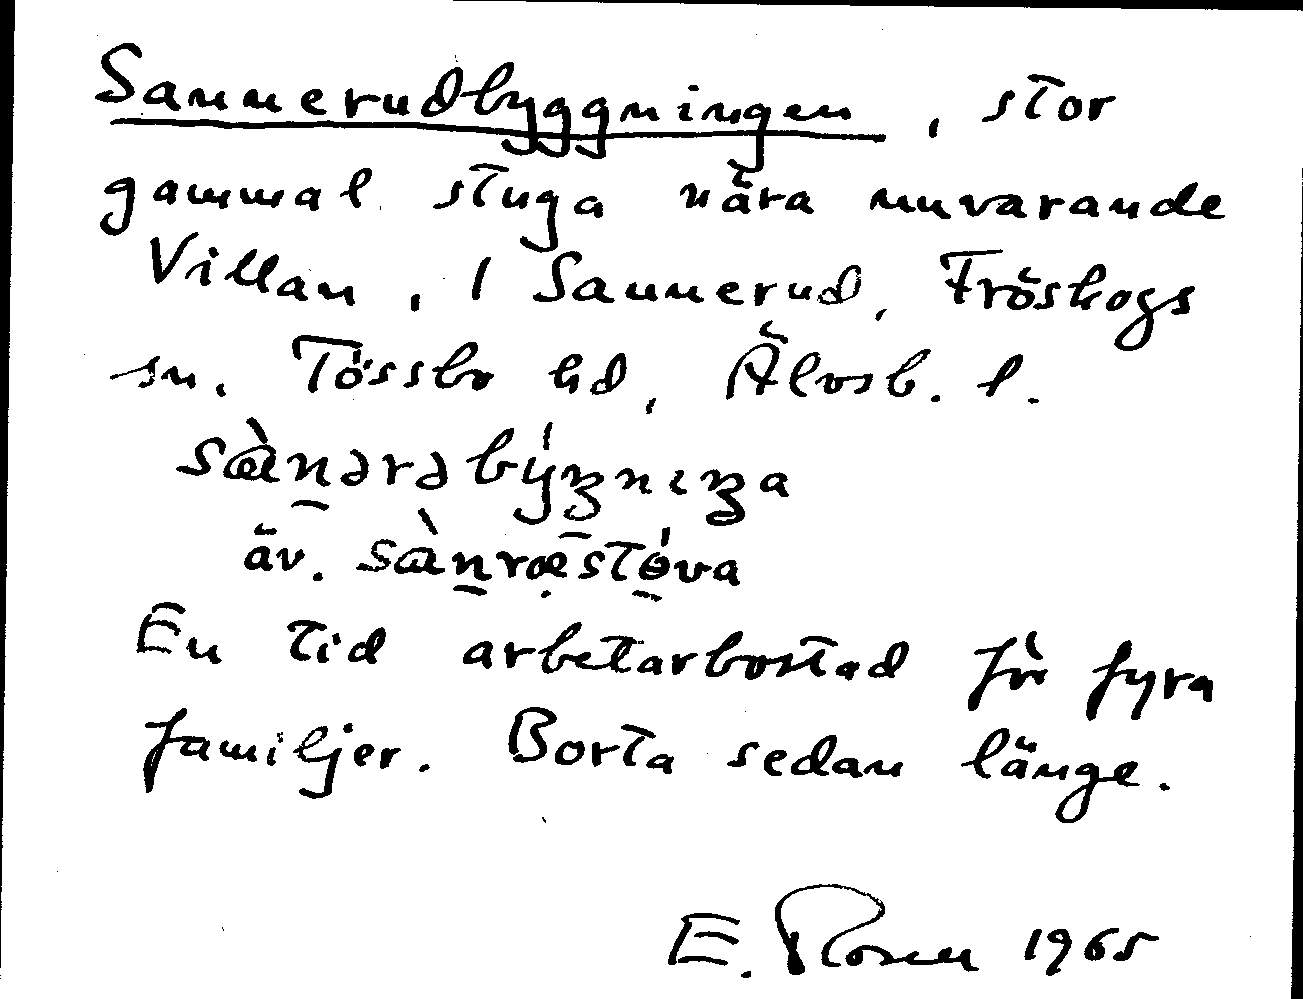 Sannerudbyggningen, stor
gammal stuga nära nuvarande
Villan, 1 Sannerud, Fröskogs
sn. Tössbo hd, Älvsb. l.
sàn̠ərəbýgnıŋa
äv. sàn̠ræ̣stó̠va
En tid arbetarbostad för fyra
familjer. Borta sedan länge.
E. Rosen 1965